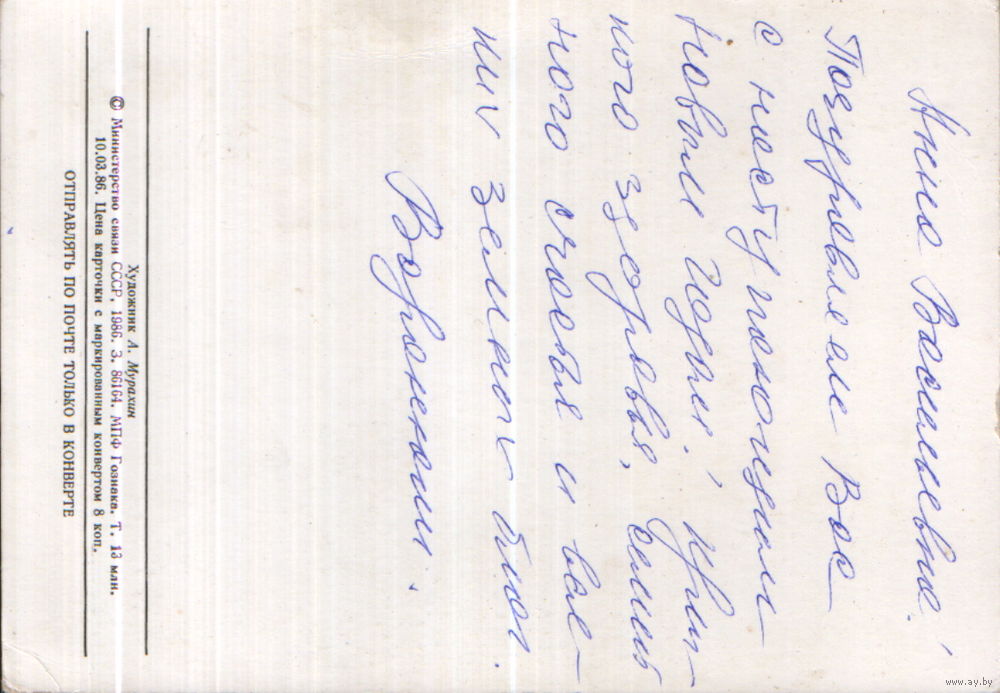 Анна Васильевна!
Поздравляем Вас
с наступающим
Новым годом! креп-
кого здоровья, семей
ного счастья и все-
них земных благ.
Воронины.
Художник А. Мурахин
© Министерство связи СССР, 1986. З. 86164. МПФ Гознака. Т. 13 млн.
10.03.86. Цена карточки с маркированным конвертом 8 коп.
ОТПРАВЛЯТЬ ПО ПОЧТЕ ТОЛЬКО В КОНВЕРТЕ
www.ay.by